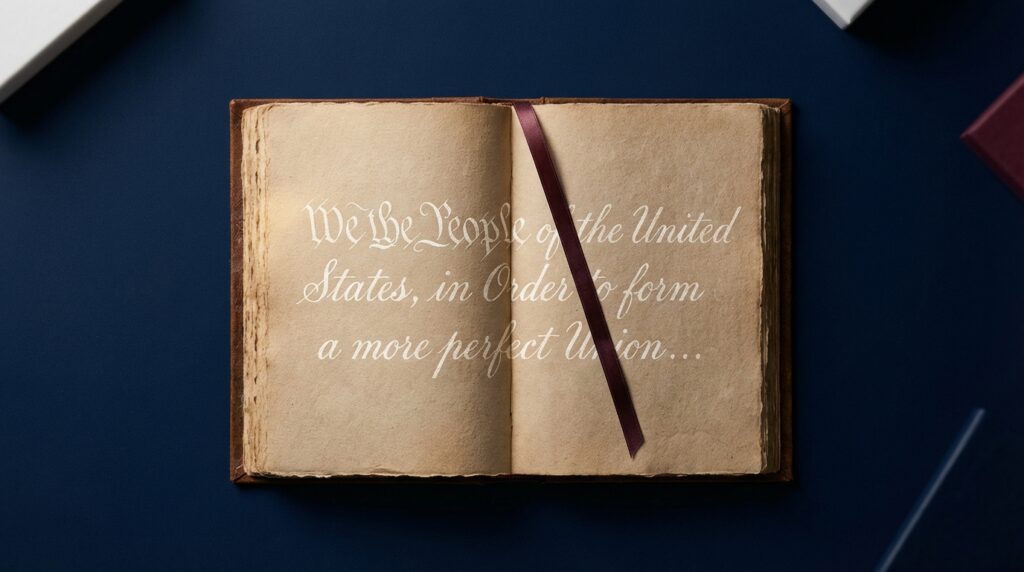 We The People of the United
States, in Order to form
a more perfect Union...